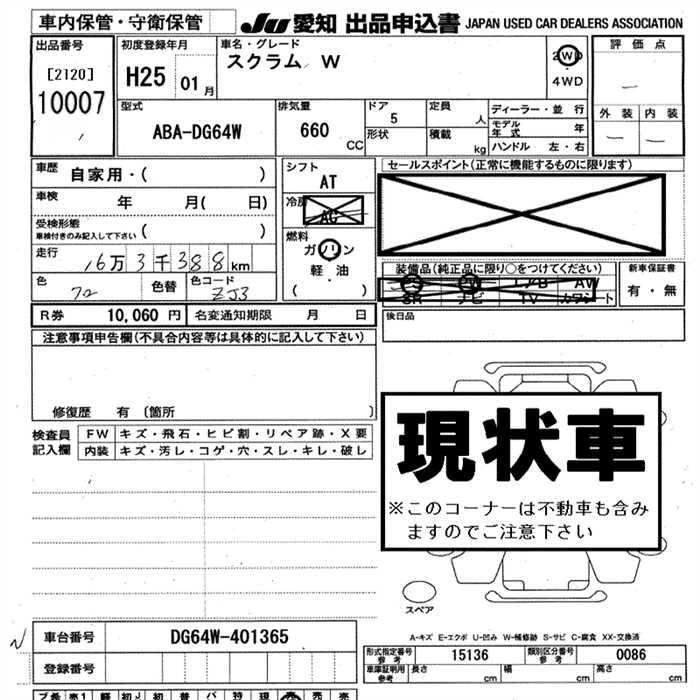 車内保管・守衛保管 JU 愛知 出品申込書 JAPAN USED CAR DEALERS ASSOCIATION
出品番号 初度登録年月 車名・グレード 評価点
[2120] H25 01月 スクラム W 2WD
10007 ・4WD
外装 内装
型式 排気量 ドア 定員 ディーラー・並行
ABA-DG64W 660 CC 5 人 モデル年式 年
形状 積載 kg ハンドル 左・右
車歴 自家用・( ) シフト AT セールスポイント(正常に機能するものに限ります)
車検 年 月( 日) 冷房 AC
受検形態 ( )
車検付きのみ記入して下さい
走行 16万3千388km 燃料 ガソリン・軽油 ( )
装備品(純正品に限り○をつけてください) 新車保証書
PS PW エアB AW 有・無
SR ナビ TV カワシート
色 色替 色コード ZJ3
R券 10,060円 名変通知期限 月 日 後日品
注意事項申告欄(不具合内容等は具体的に記入して下さい)
修復歴 有〔箇所 〕
現状車
※このコーナーは不動車も含みますのでご注意下さい
検査員記入欄 FW キズ・飛石・ヒビ割・リペア跡・X要
内装 キズ・汚レ・コゲ・穴・スレ・キレ・破レ
スペア
A-キズ E-エクボ U-凹み W-補修跡 S-サビ C-腐食 XX-交換済
N 車台番号 DG64W-401365
登録番号
形式指定番号 参考 15136 類別区分番号 参考 0086
車庫証明用 参考 長さ cm 幅 cm 高さ cm